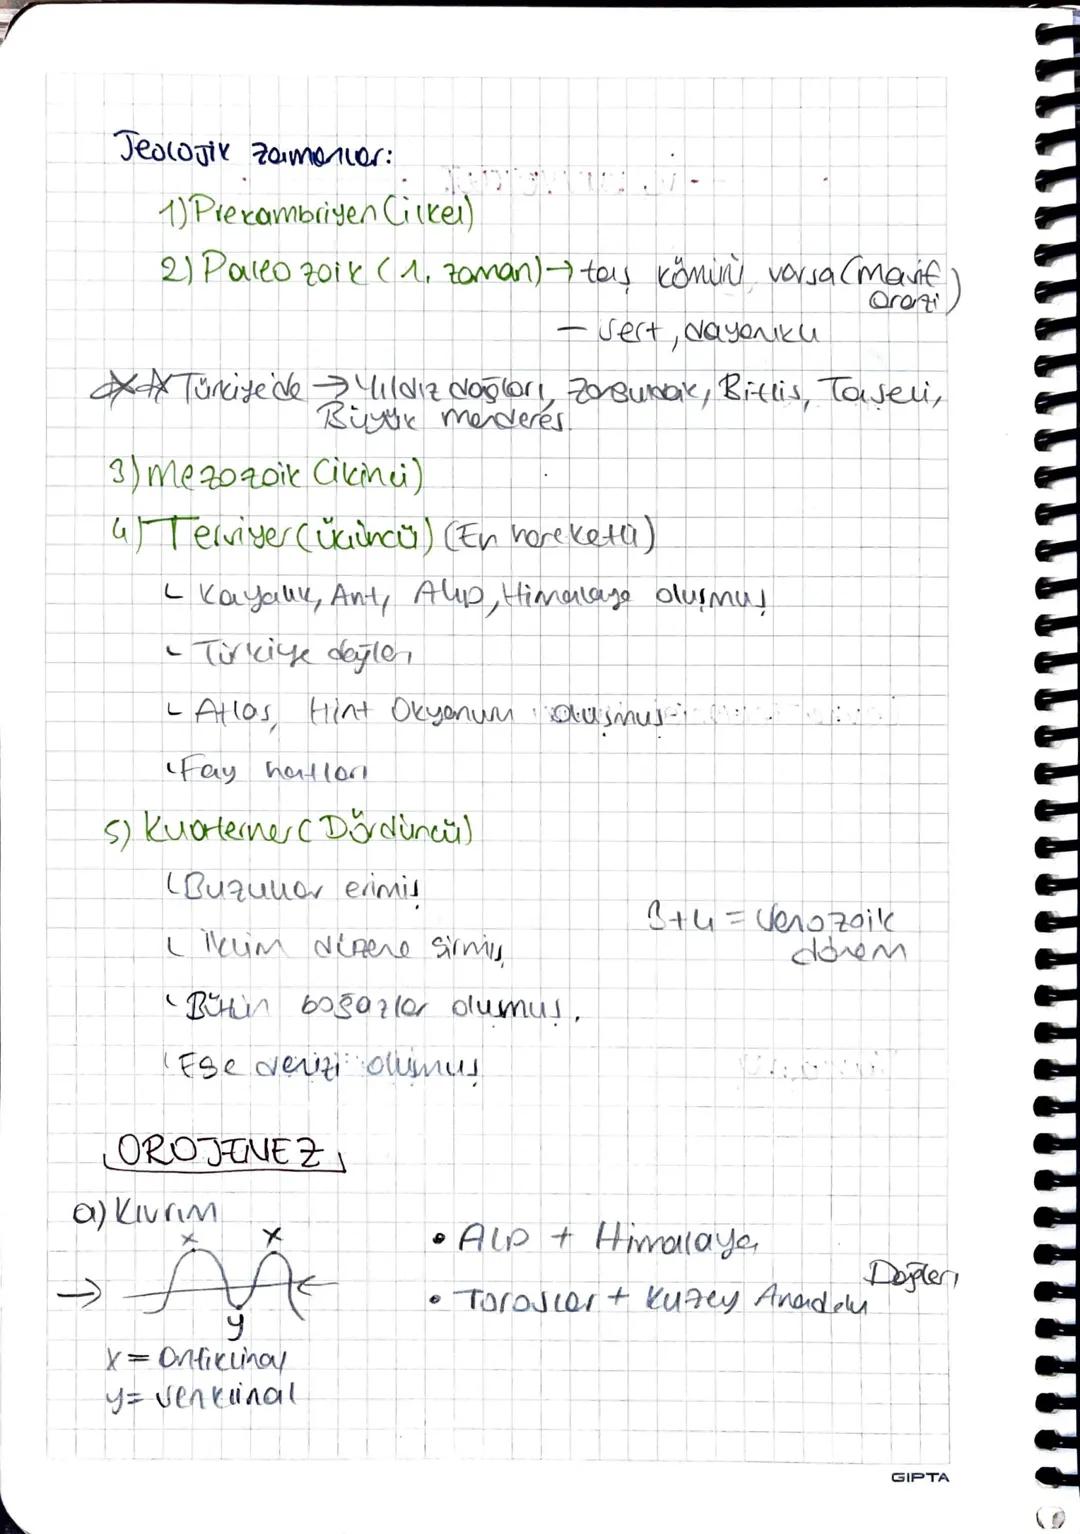 Jeolojik zamanlar:
1) Prekambriyen (ilkel)
2) Paleozoik (1. zaman) → taş kömürü varsa (masif arazi)
- sert, dayanıklı
Türkiye'de → Yıldız dağları, Zonguldak, Bitlis, Taşeli,
Büyük menderes.
3) Mezozoik (ikinci)
4) Tersiyer (üçüncü) (En hareketli)
Kayalık, Ant, Alp, Himalaya oluşmuş
Türkiye dağları
Atlas, Hint Okyanusu oluşmuş
Fay hatları
5) Kuaterner (Dördüncü)
Buzullar erimiş
İklim düzene girmiş
3+4 = Senozoik
dönem
Bütün boğazlar olumuş.
Ege denizi olumuş
OROJENEZ
a) Kıvrım
x x
y
x = Antiklinal
y = senklinal
• Alp + Himalaya
• Toroslar + Kuzey Anadolu Dağları
GIPTA